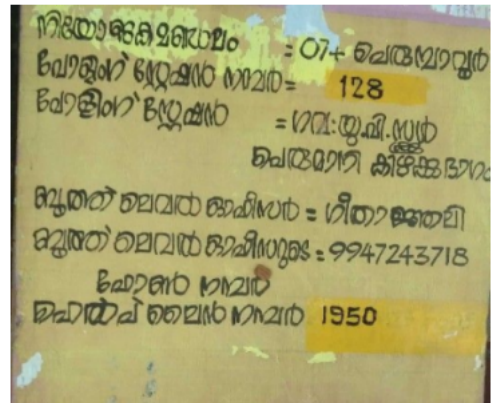 നിയോജകമണ്ഡലം = 074 പെരുമ്പാവൂർ
പോളിംഗ് സ്റ്റേഷൻ നമ്പർ = 128
പോളിംഗ് സ്റ്റേഷൻ = ഗവ:യു.പി.സ്കൂൾ
പെരുമാനി കിഴക്കുഭാഗം
ബൂത്ത് ലെവൽ ഓഫീസർ = ഗീതാഞ്ജലി
ബൂത്ത് ലെവൽ ഓഫീസറുടെ = 9947243718
ഫോൺ നമ്പർ
ഹെൽപ് ലൈൻ നമ്പർ 1950